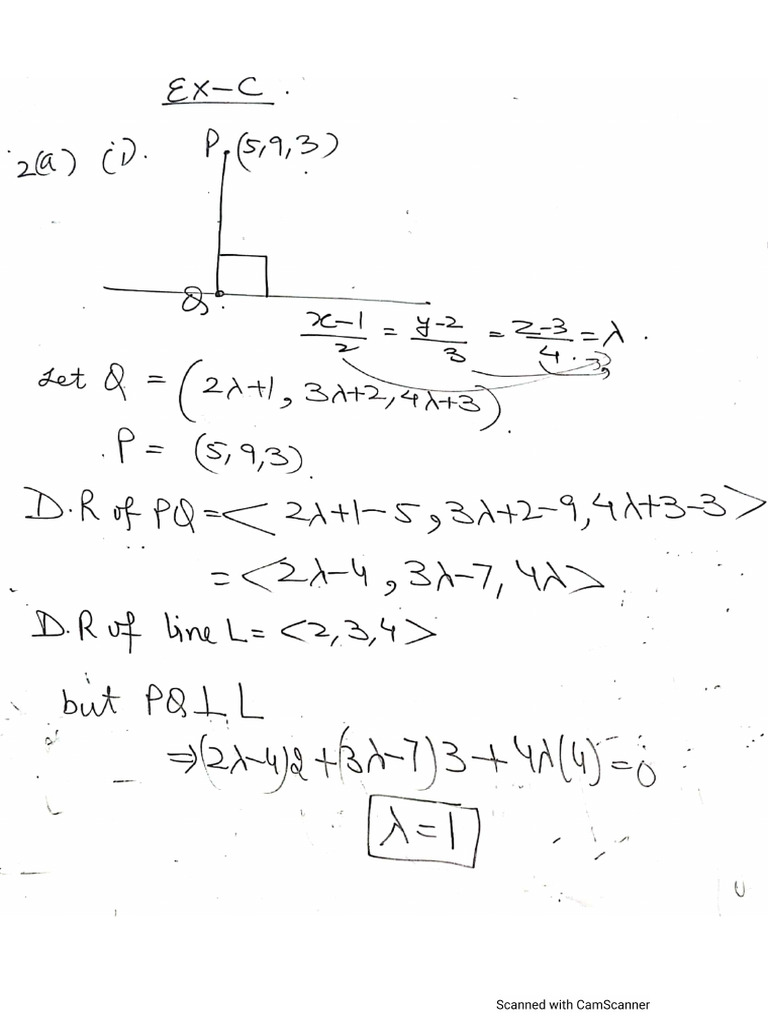 Ex-C.
2(a) (i). P (5,9,3)
Q
x-1/2 = y-2/3 = z-3/4 = λ.
Let Q = (2λ+1, 3λ+2, 4λ+3).
P = (5,9,3).
D.R of PQ = <2λ+1-5, 3λ+2-9, 4λ+3-3>
= <2λ-4, 3λ-7, 4λ>
D.R of line L = <2,3,4>
but PQ⊥L
⇒(2λ-4)2+(3λ-7)3+4λ(4)=0
λ=1
Scanned with CamScanner